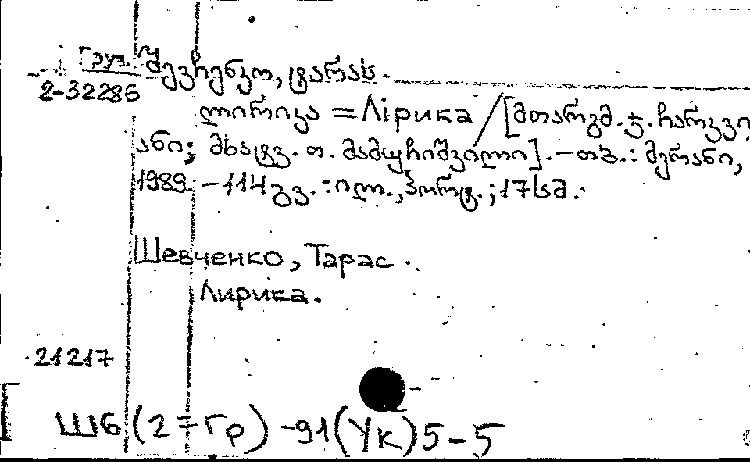 Груз.
2-32286
შევჩენკო, ტარას.
ლირიკა = Лірика / [მთარგმ. ჯ. ჩარკვი
ანი; მხატვ. თ. მამუჩიშვილი]. – თბ.: მერანი,
1989. – 114 გვ. : ილ., პორტ. ; 17 სმ.
Шевченко, Тарас.
Лирика.
21217
Шб (2=Гр) -91(Ук)5-5